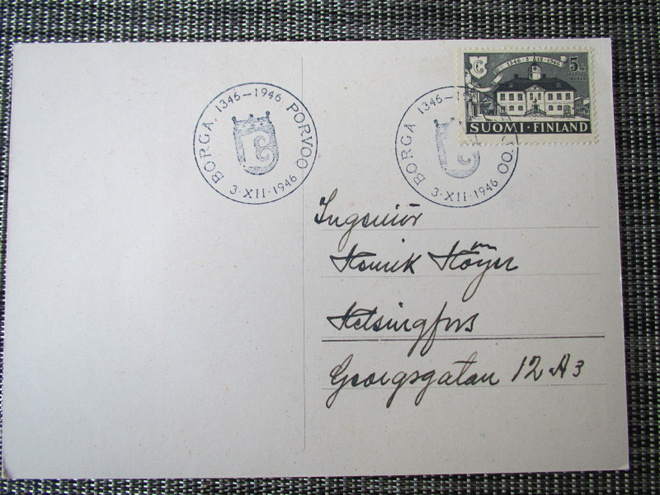 BORGÅ. 1346-1946 PORVOO
3·XII·1946
BORGÅ 1346-1
OO
3·XII·1946
1346·3·XII·1946
5
SUOMI·FINLAND
Ingeniör
Henrik
Helsingfors
Georgsgatan 12 A3